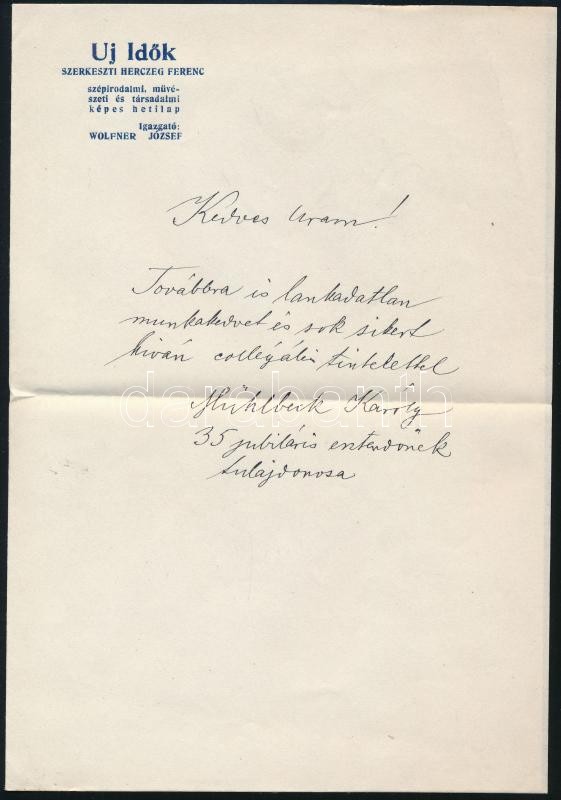 Uj Idők
SZERKESZTI HERCZEG FERENC
szépirodalmi, művé-
szeti és társadalmi
képes hetilap
Igazgató:
WOLFNER JÓZSEF
Kedves Uram!
Továbbra is lankadatlan
munkakedvet és sok sikert
kiván collegiális tisztelettel
darabanth
Mühlbeck Károly
35 jubiláris esztendőnek
tulajdonosa